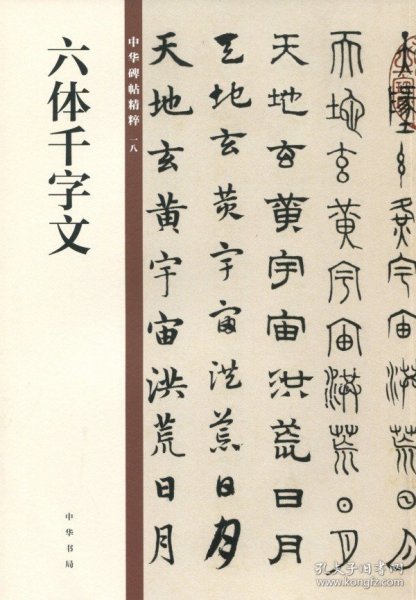 六体千字文
中华碑帖精粹 一八
中华书局
天地玄黃宇宙洪荒日月
天地玄黃宇宙洪荒日月
天地玄黃宇宙洪荒日月
天地玄黃宇宙洪荒日月
孔夫子旧书网
www.kongfz.com